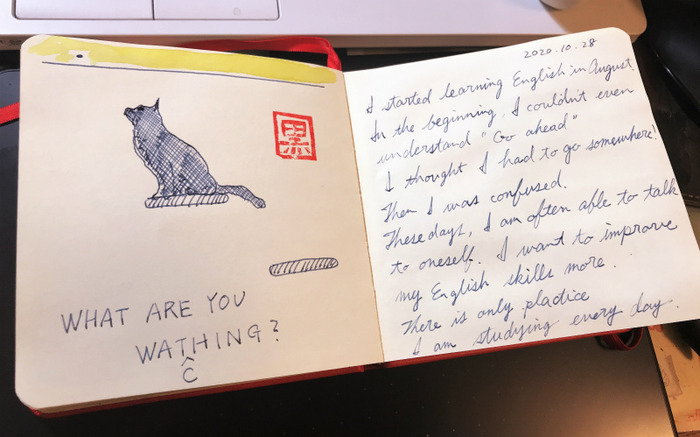 黒
WHAT ARE YOU
WATHING?
C
2020.10.28
I started learning English in August.
In the beginning, I couldn't even
understand "Go ahead"
I thought I had to go somewhere!
Then I was confused.
These days, I am often able to talk
to oneself. I want to improve
my English skills more.
There is only plactice
I am studying every day.